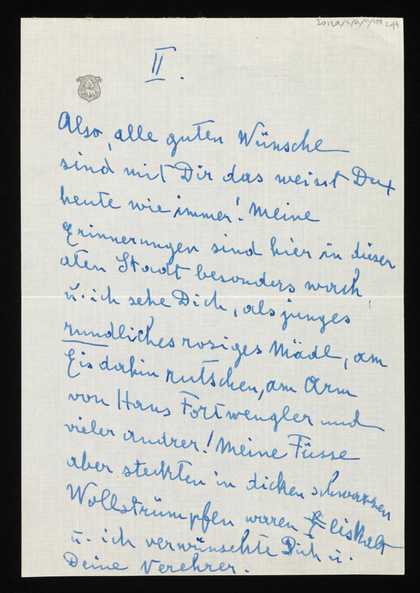 II.
Also, alle guten Wünsche
sind mit Dir das weisst Du
heute wie immer! Meine
Erinnerungen sind hier in dieser
alten Stadt besonders wach
u. ich sehe Dich, als junges
rundliches rosiges Mädl, am
Eis dahin rutschen, am Arm
von Hans Fortwengler und
vieler andrer! Meine Füsse
aber steckten in dicken schwarzen
Wollstrümpfen waren eiskalt
u. ich verwünschte Dich u.
Deine Verehrer.